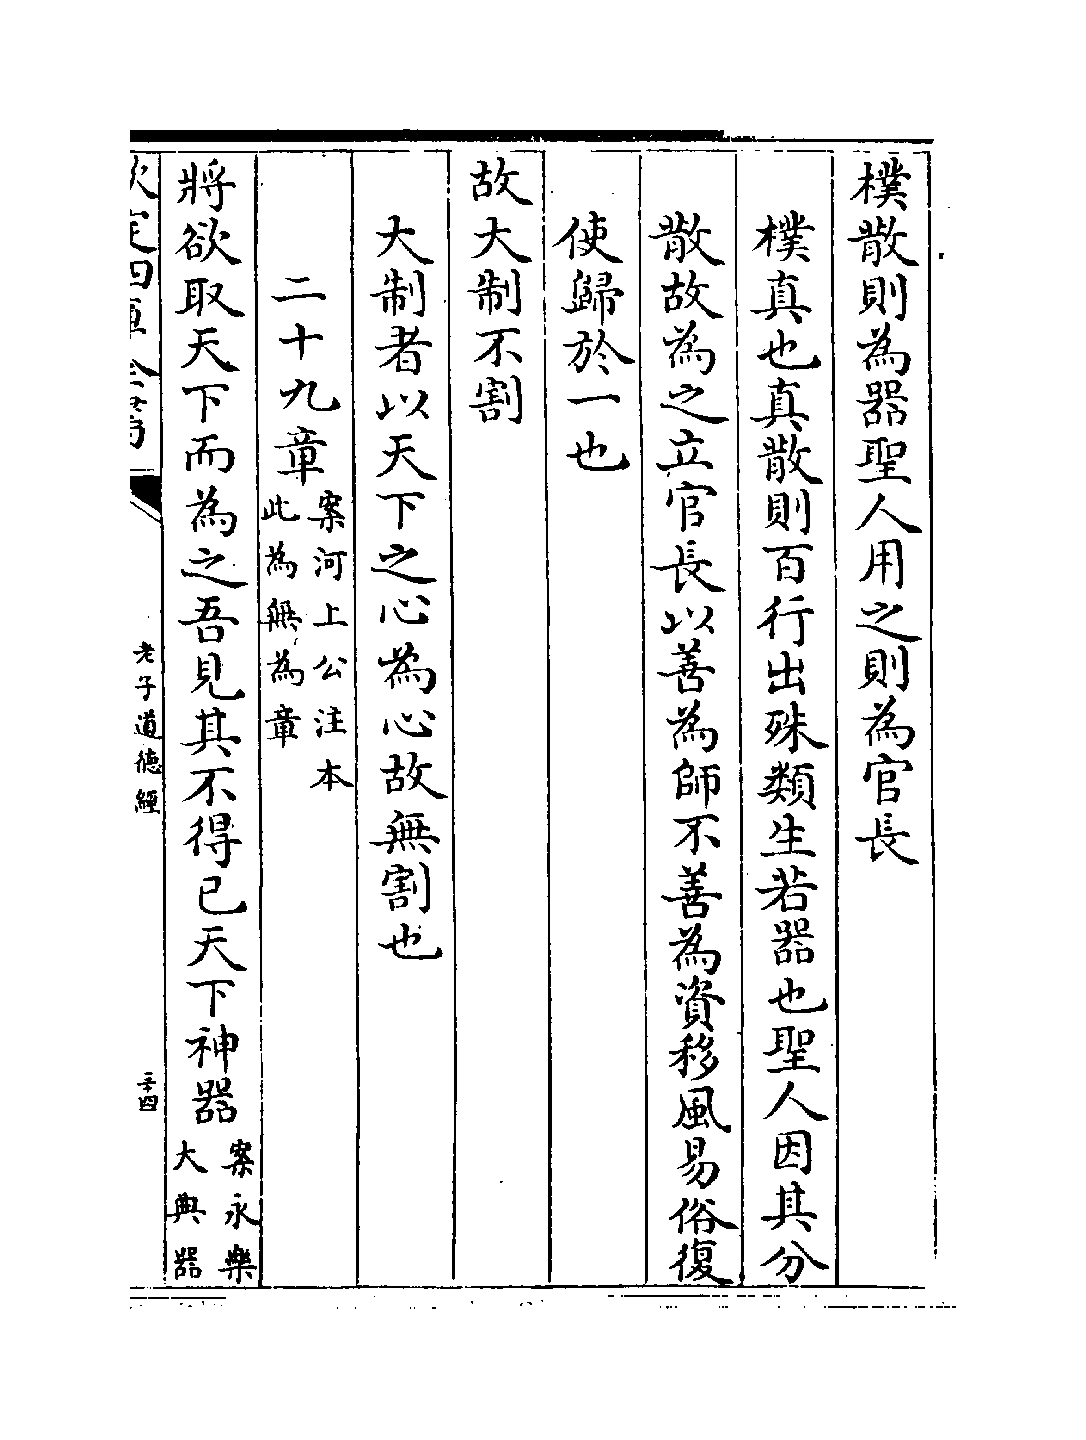 樸散則為器聖人用之則為官長
樸真也真散則百行出殊類生若器也聖人因其分
散故為之立官長以善為師不善為資移風易俗復
使歸於一也
故大制不割
大制者以天下之心為心故無割也
二十九章案河上公注本
此為無為章
將欲取天下而為之吾見其不得已天下神器案永樂
大典器
欽定四庫全書
老子道德經
二十四